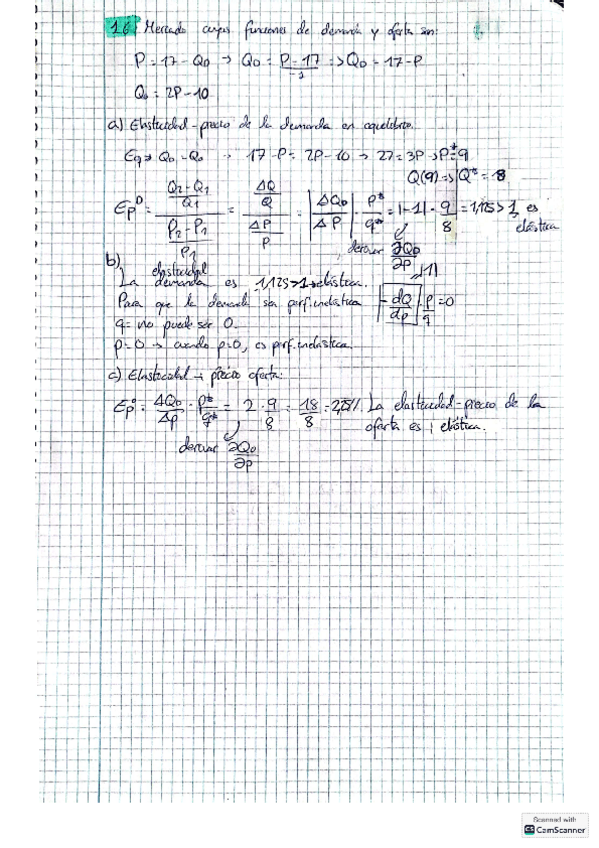 1.6 Mercado cuyas funciones de demanda y oferta son:
P = 17 - QD → QD = P-17/-1 => QD = 17-P
Qo = 2P-10
a) Elasticidad-precio de la demanda en equilibrio.
Eq => QD = Qo → 17-P = 2P-10 → 27 = 3P → P* = 9
Q(9) => Q* = 8
EpD = Q2-Q1/Q1 / P2-P1/P1 = ΔQ/Q / ΔP/P = |ΔQD/ΔP| · P*/q* = |-1| · 9/8 = 1,125 > 1, es elástica
derivar ∂QD/∂P |1|
b)
La elasticidad demanda es 1,125 > 1 → elástica.
Para que la demanda sea perf. inelástica |-dQ/dp| · p/q = 0
q = no puede ser 0.
p = 0 → cuando p=0, es perf. inelástica.
c) Elasticidad → precio oferta:
Epo = ΔQo/Δp · p*/q* = 2 · 9/8 = 18/8 = 2,25 La elasticidad-precio de la
oferta es elástica.
derivar ∂Qo/∂p
Scanned with
CS CamScanner